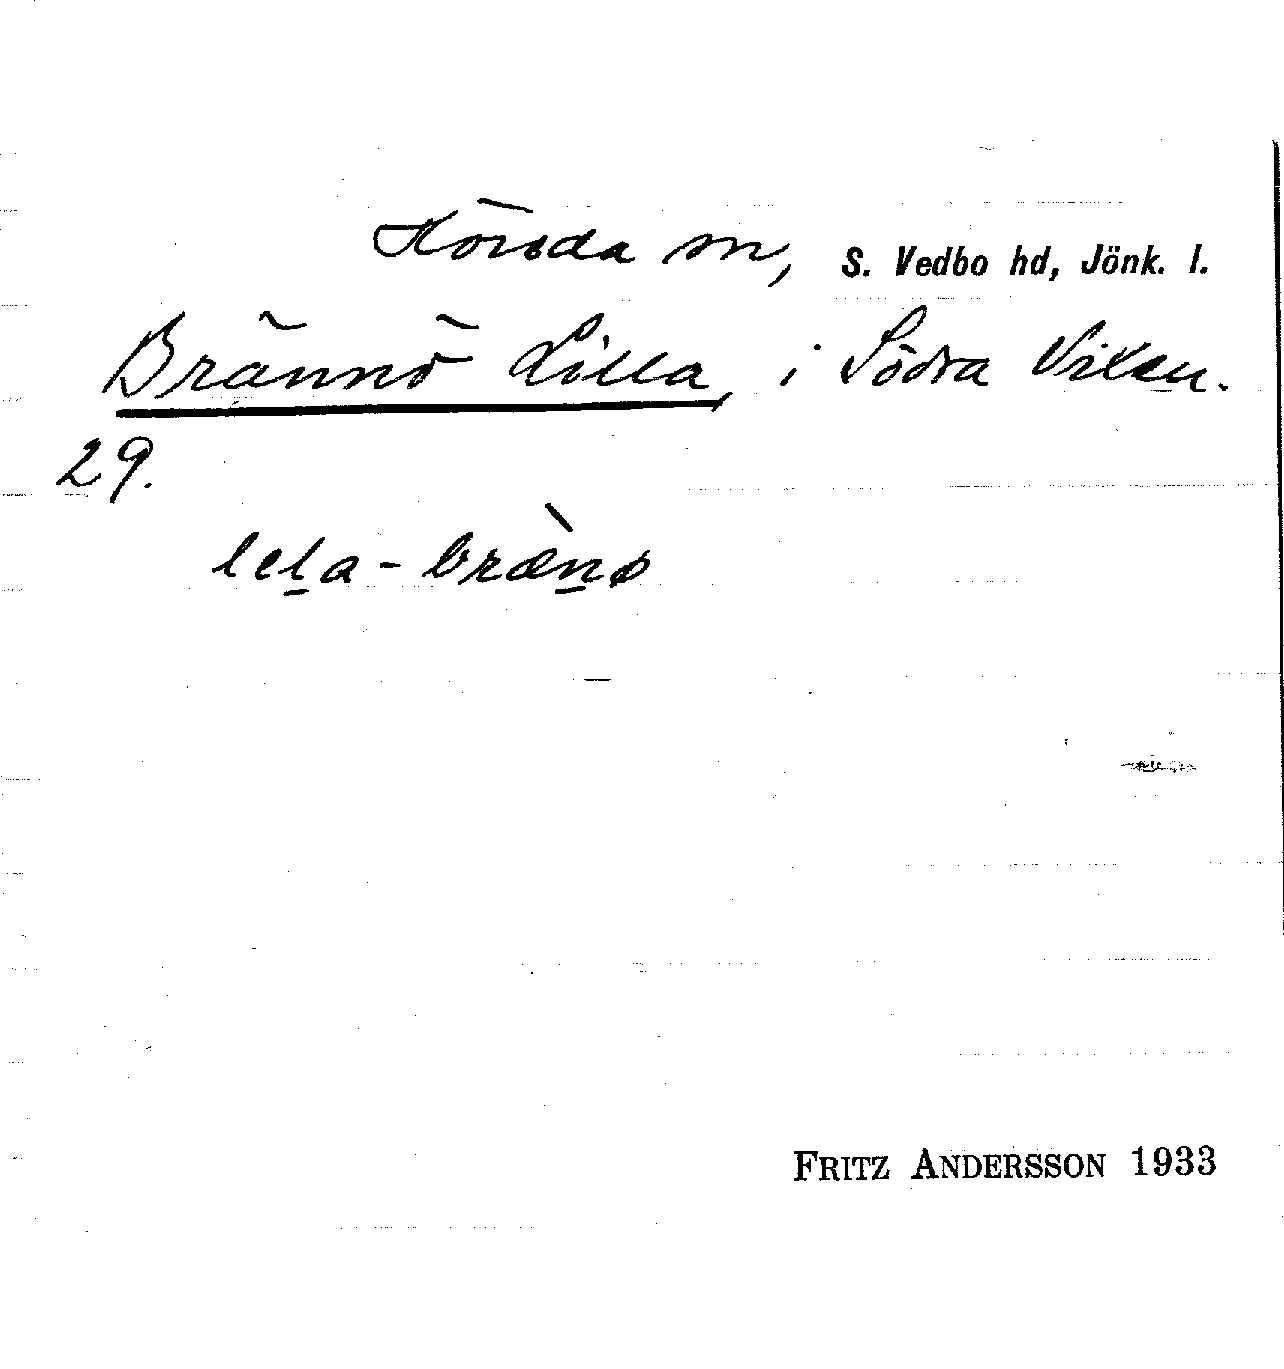 Höreda sn, S. Vedbo hd, Jönk. l.
Brännö Lilla, i Södra Vixen.
29.
lel̠a - bræ̀n̠ø
FRITZ ANDERSSON 1933